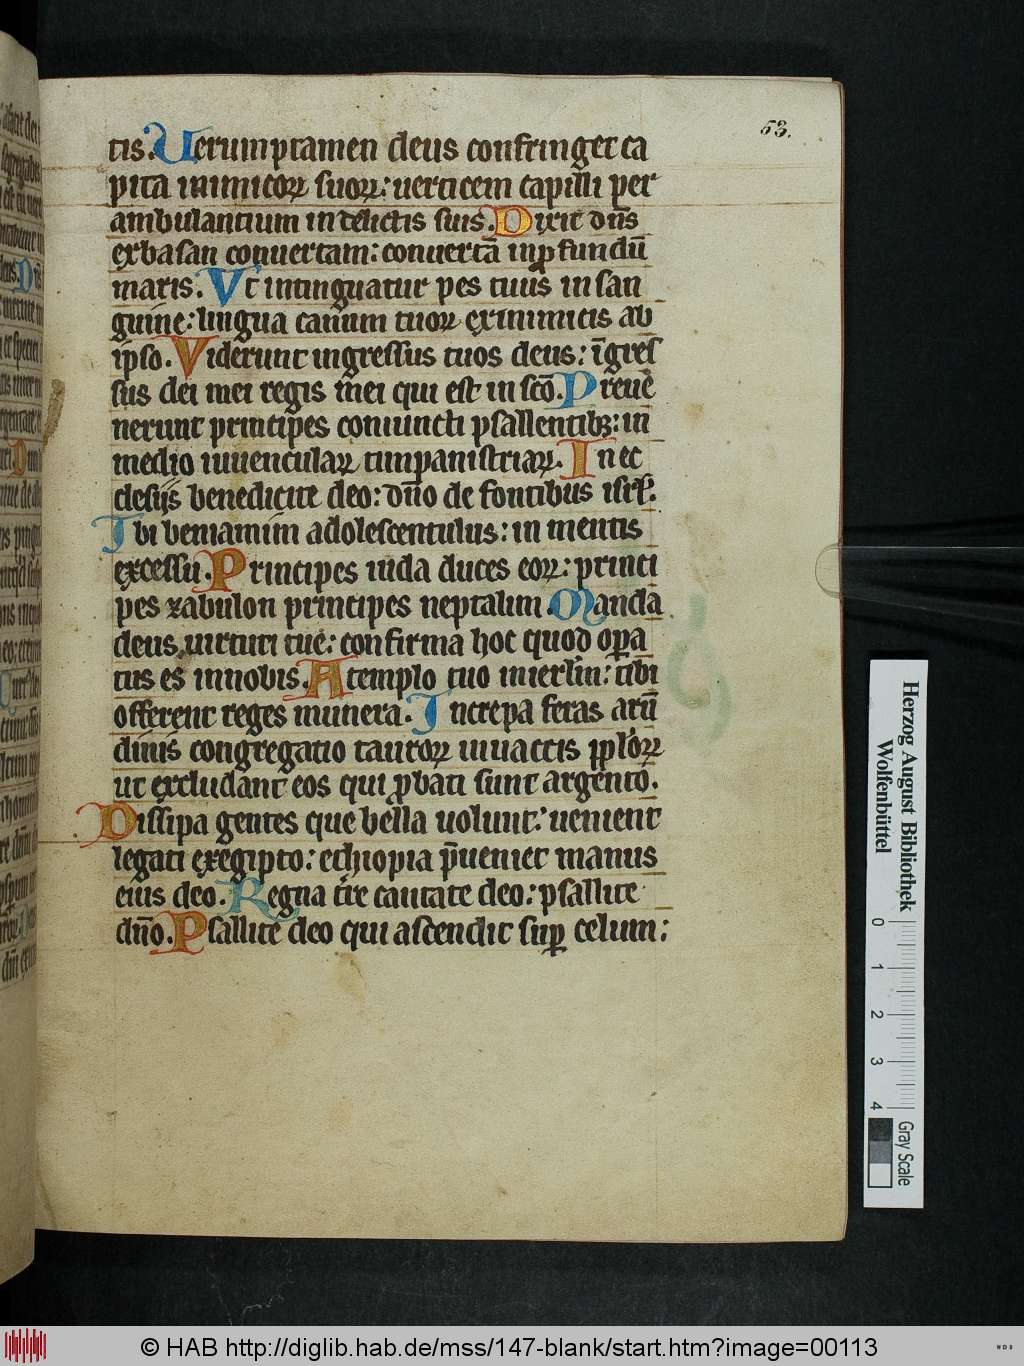 53.
tis. Uerumptamen deus confringet ca
pita inimicoꝝ suoꝝ: uerticem capilli per
ambulantium in delictis suis. Dixit dn̄s
exbasan conuertam: conuertā inꝓfundū
maris. Vt intinguatur pes tuus in san
guine: lingua canum tuoꝝ exinimicis ab
ipso. Viderunt ingressus tuos deus: īgres
sus dei mei regis mei qui est in scō. Preue
nerunt principes coniuncti psallentibꝫ: in
medio iuuencularꝝ timpanistriarꝝ. In ec
clesijs benedicite deo: dn̄o de fontibus isrl̄.
Ibi beniamim adolescentulus: in mentis
excessu. Principes iuda duces eoꝝ: princi
pes zabulon principes neptalim. Manda
deus uirtuti tue: confirma hoc quod oꝑa
tus es innobis. A templo tuo inierl̄m: tibi
offerent reges munera. Increpa feras arū
dinis congregatio tauroꝝ inuaccis ppl̄oꝝ
ut excludant eos qui ꝓbati sunt argento.
Dissipa gentes que bella uolunt: uenient
legati exegipto: ethiopia p̄ueniet manus
eius deo. Regna tr̄e cantate deo: psallite
dn̄o. Psallite deo qui ascendit suꝑ celum:
Herzog August Bibliothek
Wolfenbüttel
0 1 2 3 4
Gray Scale
© HAB http://diglib.hab.de/mss/147-blank/start.htm?image=00113